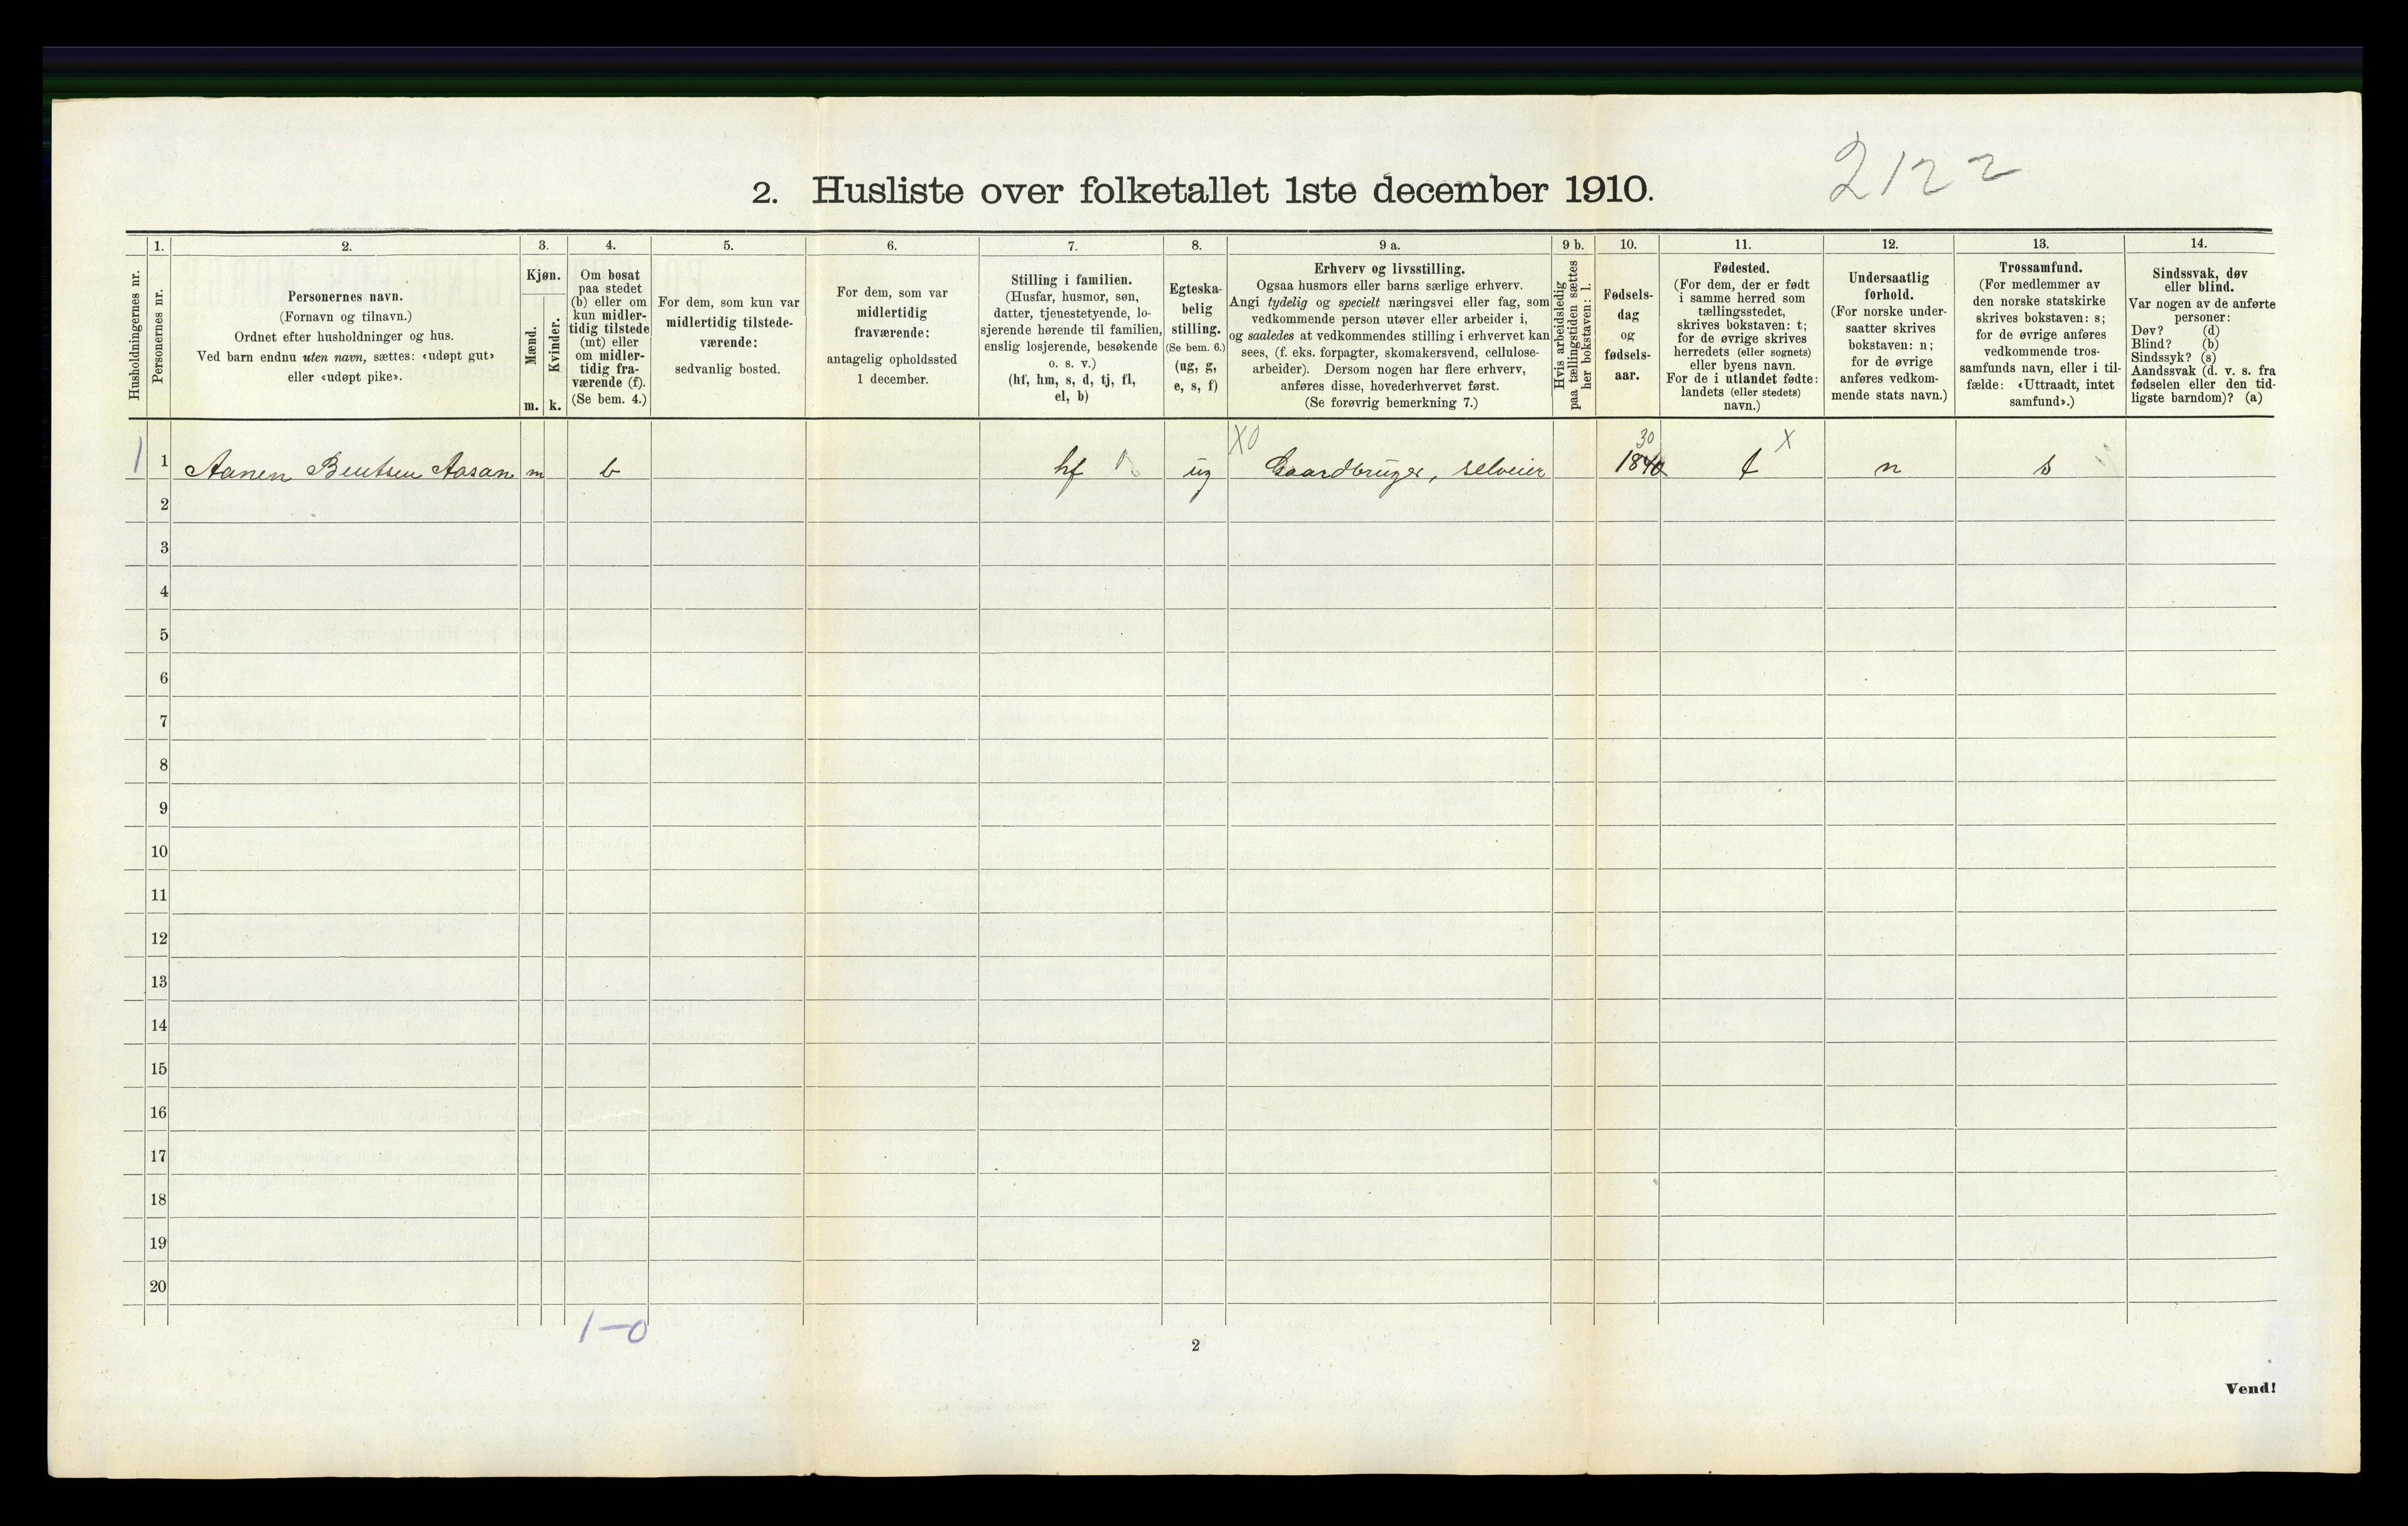 2122
2. Husliste over folketallet 1ste december 1910.
Husholdningernes nr.
1.
Personernes nr.
2.
Personernes navn.
(Fornavn og tilnavn.)
Ordnet efter husholdninger og hus.
Ved barn endnu uten navn, sættes: «udøpt gut»
eller «udøpt pike».
3.
Kjøn.
Mænd.
Kvinder.
m. k.
4.
Om bosat
paa stedet
(b) eller om
kun midler-
tidig tilstede
(mt) eller
om midler-
tidig fra-
værende (f).
(Se bem. 4.)
5.
For dem, som kun var
midlertidig tilstede-
værende:
sedvanlig bosted.
6.
For dem, som var
midlertidig
fraværende:
antagelig opholdssted
1 december.
7.
Stilling i familien.
(Husfar, husmor, søn,
datter, tjenestetyende, lo-
sjerende hørende til familien,
enslig losjerende, besøkende
o. s. v.)
(hf, hm, s, d, tj, fl,
el, b)
8.
Egteska-
belig
stilling.
(Se bem. 6.)
(ug, g,
e, s, f)
9 a.
Erhverv og livsstilling.
Ogsaa husmors eller barns særlige erhverv.
Angi tydelig og specielt næringsvei eller fag, som
vedkommende person utøver eller arbeider i,
og saaledes at vedkommendes stilling i erhvervet kan
sees, (f. eks. forpagter, skomakersvend, cellulose-
arbeider). Dersom nogen har flere erhverv,
anføres disse, hovederhvervet først.
(Se forøvrig bemerkning 7.)
9 b.
Hvis arbeidsledig
paa tællingstiden sættes
her bokstaven: l.
10.
Fødsels-
dag
og
fødsels-
aar.
11.
Fødested.
(For dem, der er født
i samme herred som
tællingsstedet,
skrives bokstaven: t;
for de øvrige skrives
herredets (eller sognets)
eller byens navn.
For de i utlandet fødte:
landets (eller stedets)
navn.)
12.
Undersaatlig
forhold.
(For norske under-
saatter skrives
bokstaven: n;
for de øvrige
anføres vedkom-
mende stats navn.)
13.
Trossamfund.
(For medlemmer av
den norske statskirke
skrives bokstaven: s;
for de øvrige anføres
vedkommende tros-
samfunds navn, eller i til-
fælde: «Uttraadt, intet
samfund».)
14.
Sindssvak, døv
eller blind.
Var nogen av de anførte
personer:
Døv? (d)
Blind? (b)
Sindssyk? (s)
Aandssvak (d. v. s. fra
fødselen eller den tid-
ligste barndom)? (a)
X0 30 X
1 1 Aanen Bentsen Aasan m b hf ug Gaardbruger, selveier 1840 t n s
2
3
4
5
6
7
8
9
10
11
12
13
14
15
16
17
18
19
20
1-0
2
Vend!